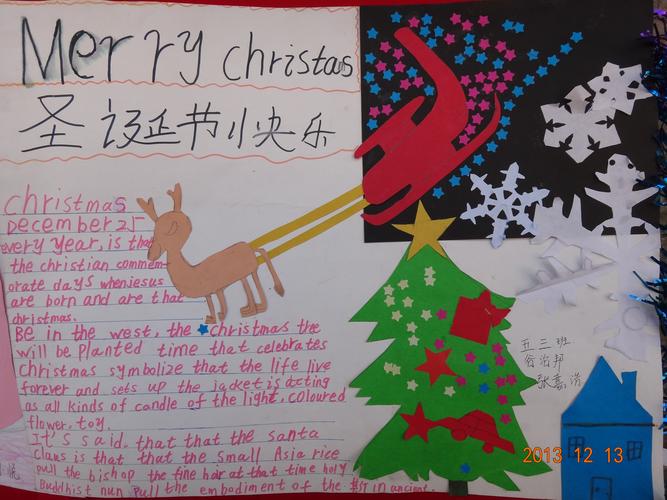 Merry christas
圣诞节小快乐
christmas
December 25
every year, is that
the christian commem-
orate days whenjesus
are born and are that
christmas.
Be in the west, the christmas the
will be planted time that celebrates
christmas symbolize that the life live
forever and sets up the jacket is acting
as all kinds of candle of the light, coloured
flower, toy.
It's said, that that the santa
claus is that that the small Asia rice
pull the bishop the fine hair at that time holy
Buddhist nun pull the embodiment of the in ancient.
五三班
张嘉
2013 12 13